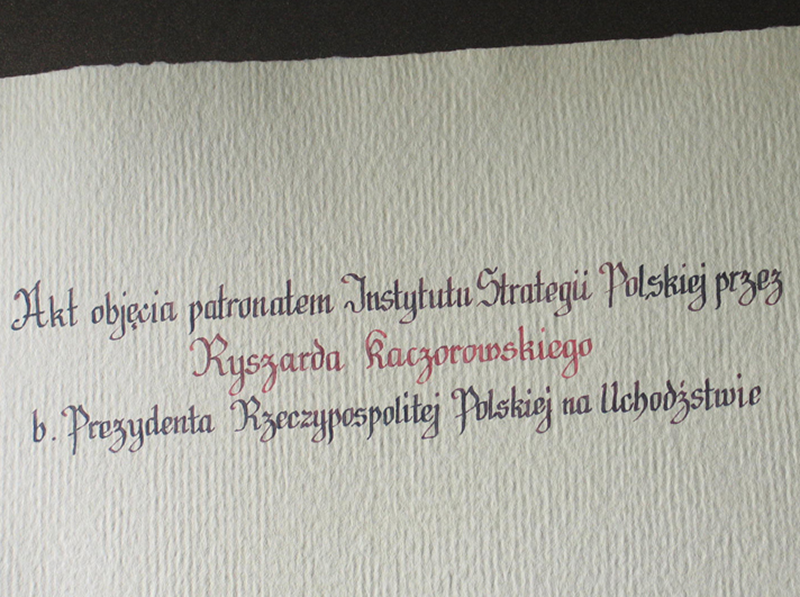 Akt objęcia patronatem Instytutu Strategii Polskiej przez
Ryszarda Kaczorowskiego
b. Prezydenta Rzeczypospolitej Polskiej na Uchodźstwie